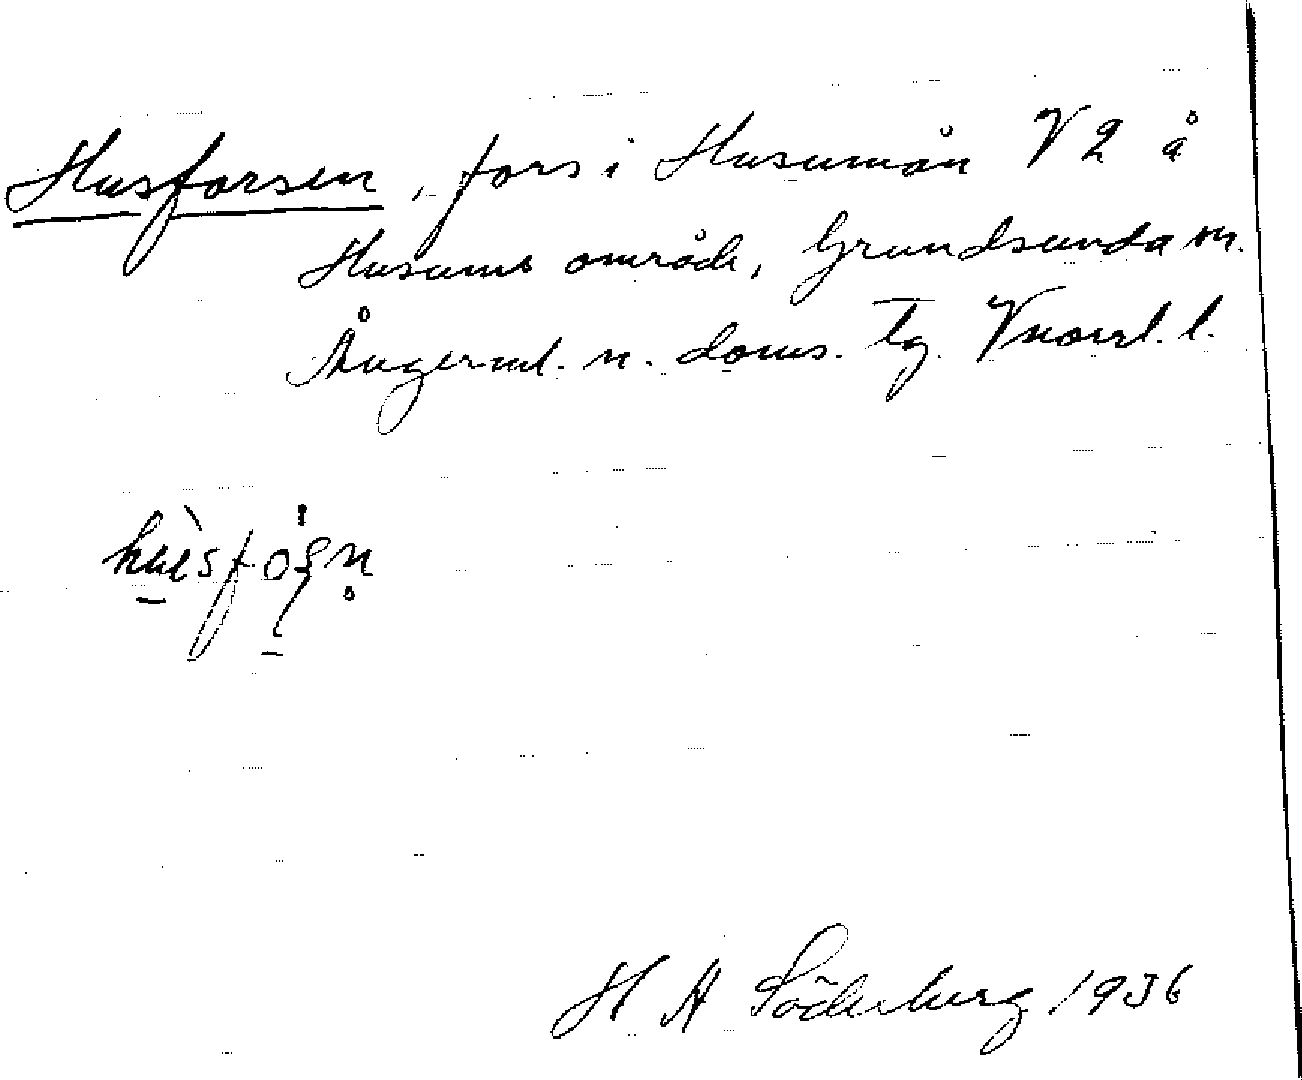 Husforsen, fors i Husumån V 2 å
Husums område, Grundsunda sn.
Ångerml. n. doms. tg. Vnorrl. l.
H A Söderberg 1936